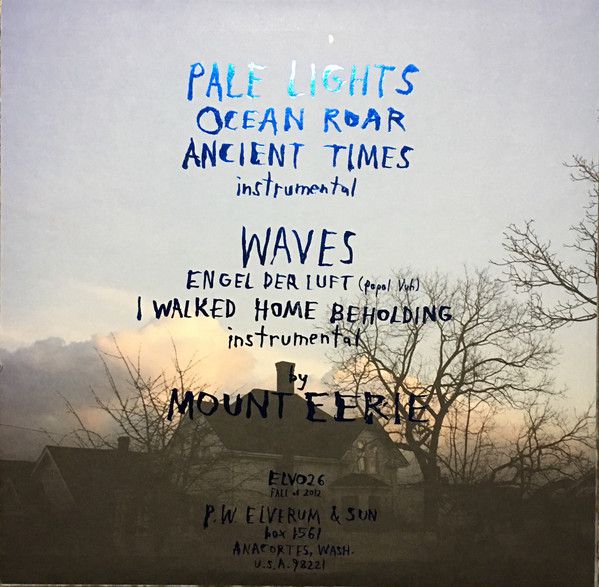 PALE LIGHTS
OCEAN ROAR
ANCIENT TIMES
instrumental
WAVES
ENGEL DER LUFT (popol Vuh)
I WALKED HOME BEHOLDING
instrumental
by
MOUNT EERIE
ELV026
FALL of 2012
P.W. ELVERUM & SUN
box 1561
ANACORTES, WASH.
U.S.A. 98221